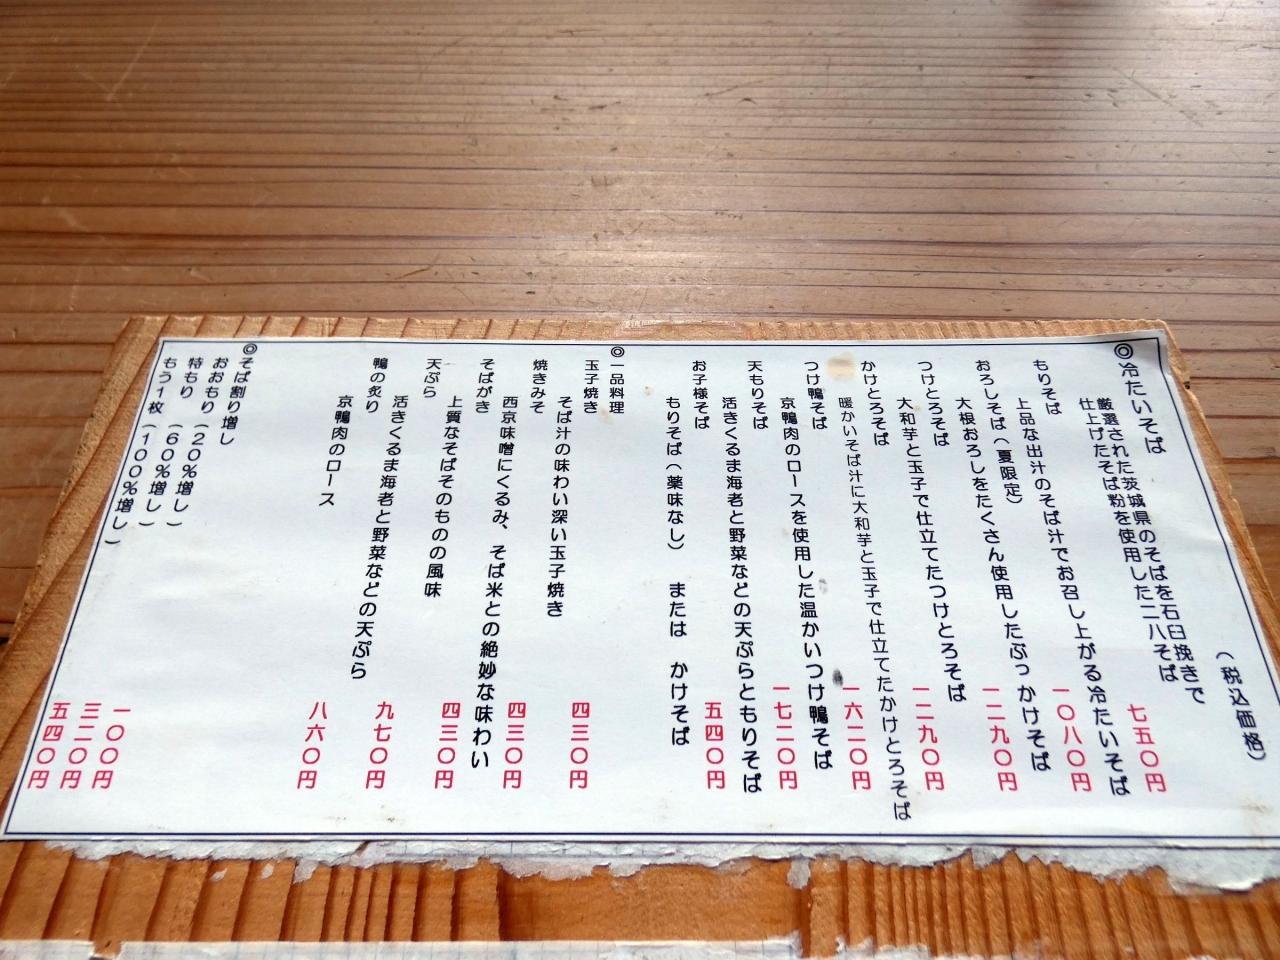 (税込価格)
◎冷たいそば
厳選された茨城県のそばを石臼挽きで
仕上げたそば粉を使用した二八そば
もりそば 七五〇円
上品な出汁のそば汁でお召し上がる冷たいそば
おろしそば(夏限定) 一〇八〇円
大根おろしをたくさん使用したぶっかけそば
つけとろそば 一二九〇円
大和芋と玉子で仕立てたつけとろそば
かけとろそば 一二九〇円
暖かいそば汁に大和芋と玉子で仕立てたかけとろそば
つけ鴨そば 一六二〇円
京鴨肉のロースを使用した温かいつけ鴨そば
天もりそば 一七二〇円
活きくるま海老と野菜などの天ぷらともりそば
お子様そば 五四〇円
もりそば(薬味なし) または かけそば
◎一品料理
玉子焼き 四三〇円
そば汁の味わい深い玉子焼き
焼きみそ 四三〇円
西京味噌にくるみ、そば米との絶妙な味わい
そばがき 四三〇円
上質なそばそのものの風味
天ぷら 九七〇円
活きくるま海老と野菜などの天ぷら
鴨の炙り 八六〇円
京鴨肉のロース
◎そば割り増し
おおもり(20%増し) 一〇〇円
特もり (60%増し) 三二〇円
もう1枚(100%増し) 五四〇円